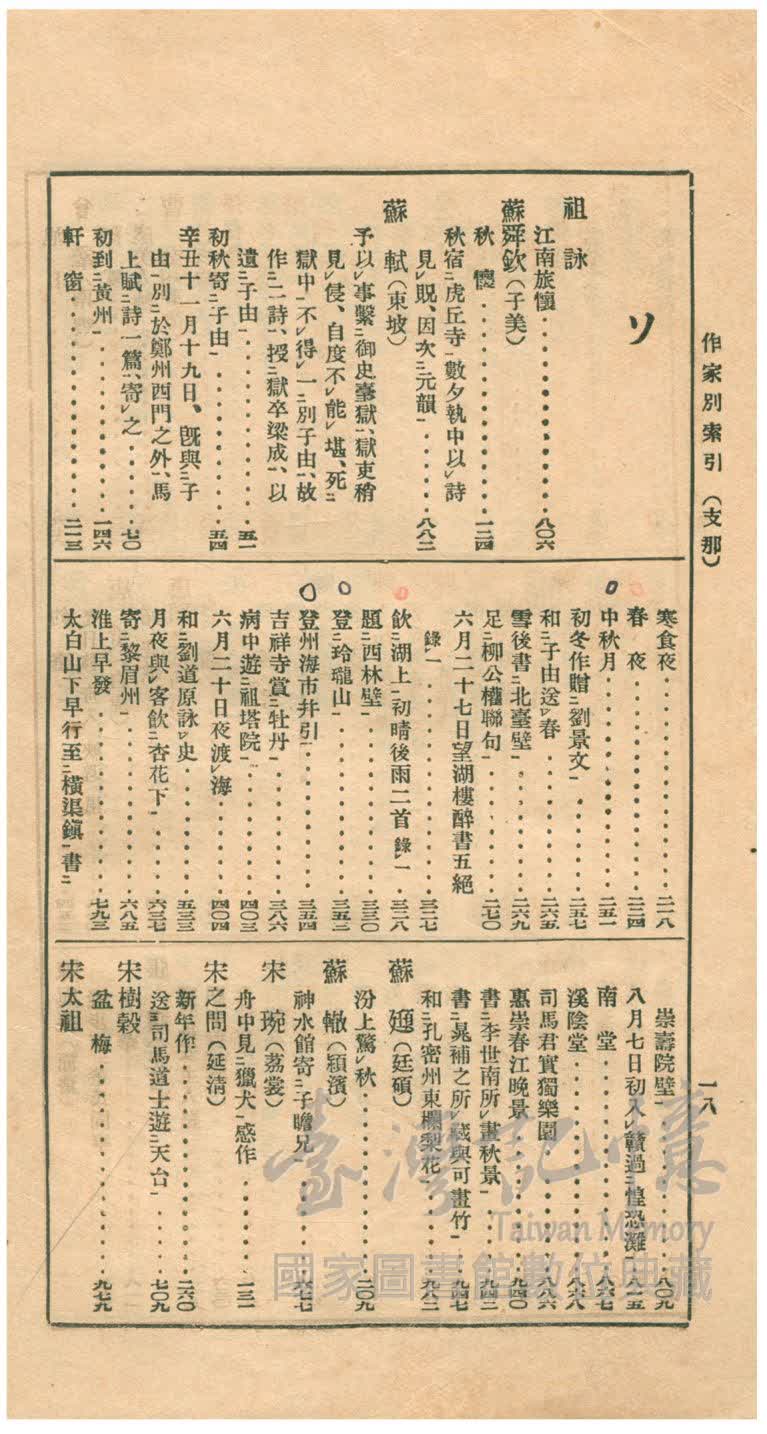 作家別索引（支那）
一八
ソ
祖詠
江南旅懷・・・・・・・・・・八〇六
蘇舜欽（子美）
秋懷・・・・・・・・・・一二四
秋宿㆓虎丘寺㆒數夕執中以㆑詩
見㆑貺、因次㆓元韻㆒・・・・・・八八二
蘇軾（東坡）
予以㆑事繫㆓御史臺獄㆒、獄吏稍
見㆑侵、自度不㆑能㆑堪、死㆓
獄中㆒不㆑得㆘一㆗別子由㆖、故
作㆓二詩㆒、授㆓獄卒梁成㆒、以
遺㆓子由㆒・・・・・・・・・・五一
初秋寄㆓子由㆒・・・・・・・・五四
辛丑十一月十九日、旣與㆓子
由㆒別㆓於鄭州西門之外㆒、馬
上賦㆓詩一篇㆒、寄㆑之・・・・・七〇
初到㆓黃州㆒・・・・・・・・一四六
軒窗・・・・・・・・・・二一三
寒食夜・・・・・・・・・・二一八
春夜・・・・・・・・・・二二四
中秋月・・・・・・・・・・二五一
初冬作贈㆓劉景文㆒・・・・・・二五七
和㆓子由送㆑春・・・・・・・・二六五
雪後書㆓北臺壁㆒・・・・・・・二六九
足㆓柳公權聯句㆒・・・・・・・二七〇
六月二十七日望湖樓醉書五絕
錄㆑一・・・・・・・・・・三二七
飮㆓湖上㆒初晴後雨二首 錄㆑一・・・三二八
題㆓西林壁㆒・・・・・・・・三三〇
登㆓玲瓏山㆒・・・・・・・・三五三
登州海市幷引・・・・・・・・三五四
吉祥寺賞㆓牡丹㆒・・・・・・・三八六
病中遊㆓祖塔院㆒・・・・・・・四〇三
六月二十日夜渡㆑海・・・・・・四〇四
和㆓劉道原詠㆑史・・・・・・・五三三
月夜與㆑客飮㆓杏花下㆒・・・・・六三七
寄㆓黎眉州㆒・・・・・・・・六八五
淮上早發・・・・・・・・・・七九三
太白山下早行至㆓橫渠鎭㆒書㆓
崇壽院壁・・・・・・・・・・八〇九
八月七日初入㆑贛過㆓惶恐灘㆒・・・八一五
南堂・・・・・・・・・・八六七
溪陰堂・・・・・・・・・・八六八
司馬君實獨樂園・・・・・・・八八六
惠崇春江晚景・・・・・・・・九四〇
書㆓李世南所㆑畫秋景㆒・・・・・九四二
書㆘晁補之所㆑藏與可畫竹㆖・・・・九四七
和㆓孔密州東欄梨花㆒・・・・・・九八二
蘇頲（廷碩）
汾上驚㆑秋・・・・・・・・二〇九
蘇轍（穎濱）
神水館寄㆓子瞻兄㆒・・・・・・六七七
宋琬（荔裳）
舟中見㆓獵犬㆒感作・・・・・・一三一
宋之問（延清）
新年作・・・・・・・・・・二六〇
送㆔司馬道士遊㆓天台㆒・・・・・七〇九
宋樹穀
盆梅・・・・・・・・・・九七九
宋太祖
臺灣記憶
Taiwan Memory
國家圖書館數位典藏